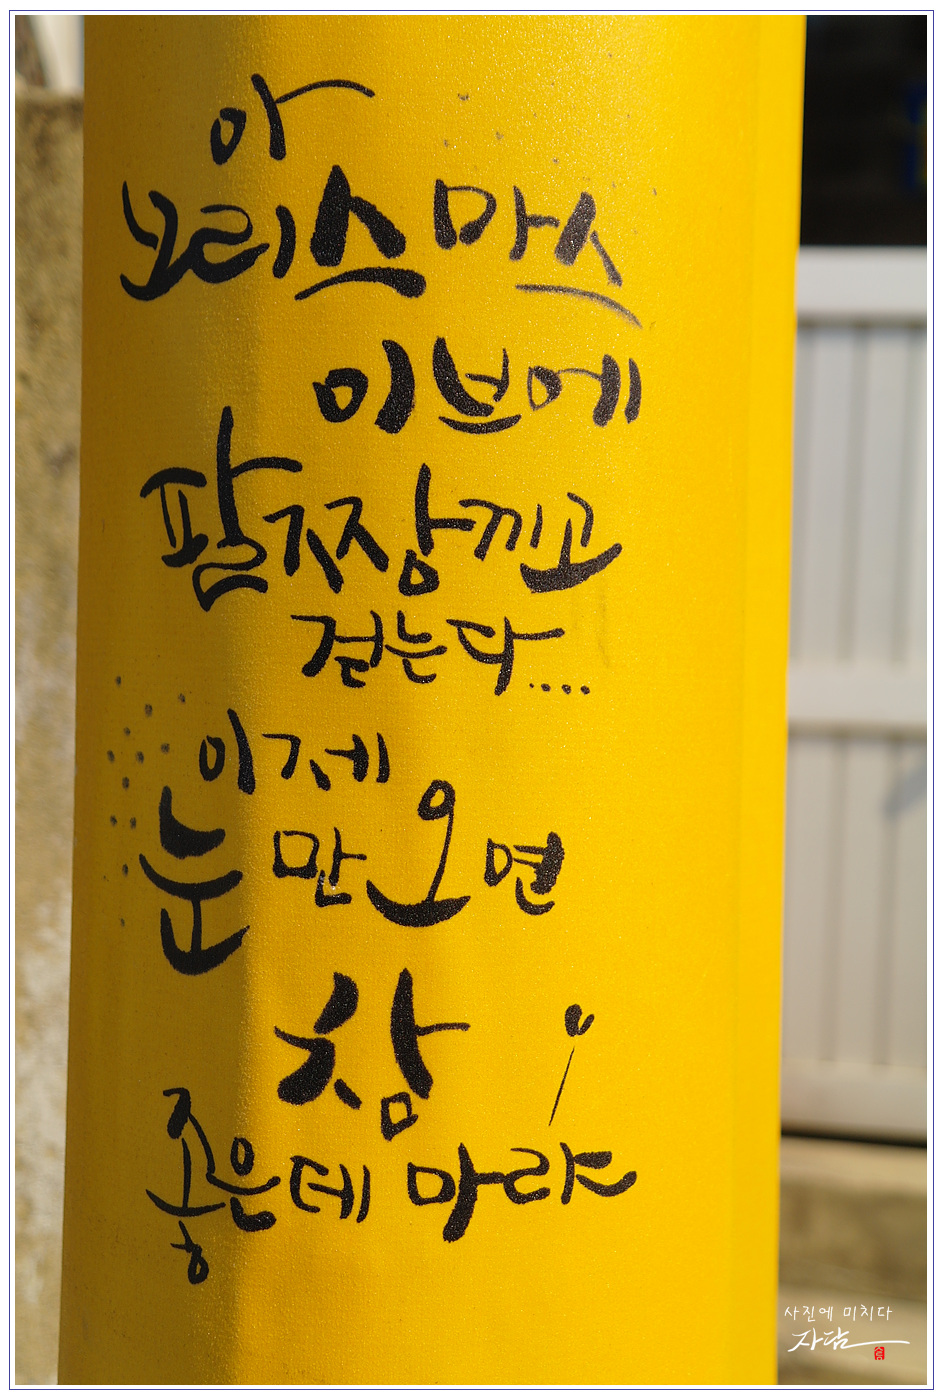 아
크리스마스
이브에
팔짱끼고
걷는다....
이제
눈만 오면
참
좋은데 마랴
사진에 미치다
자담